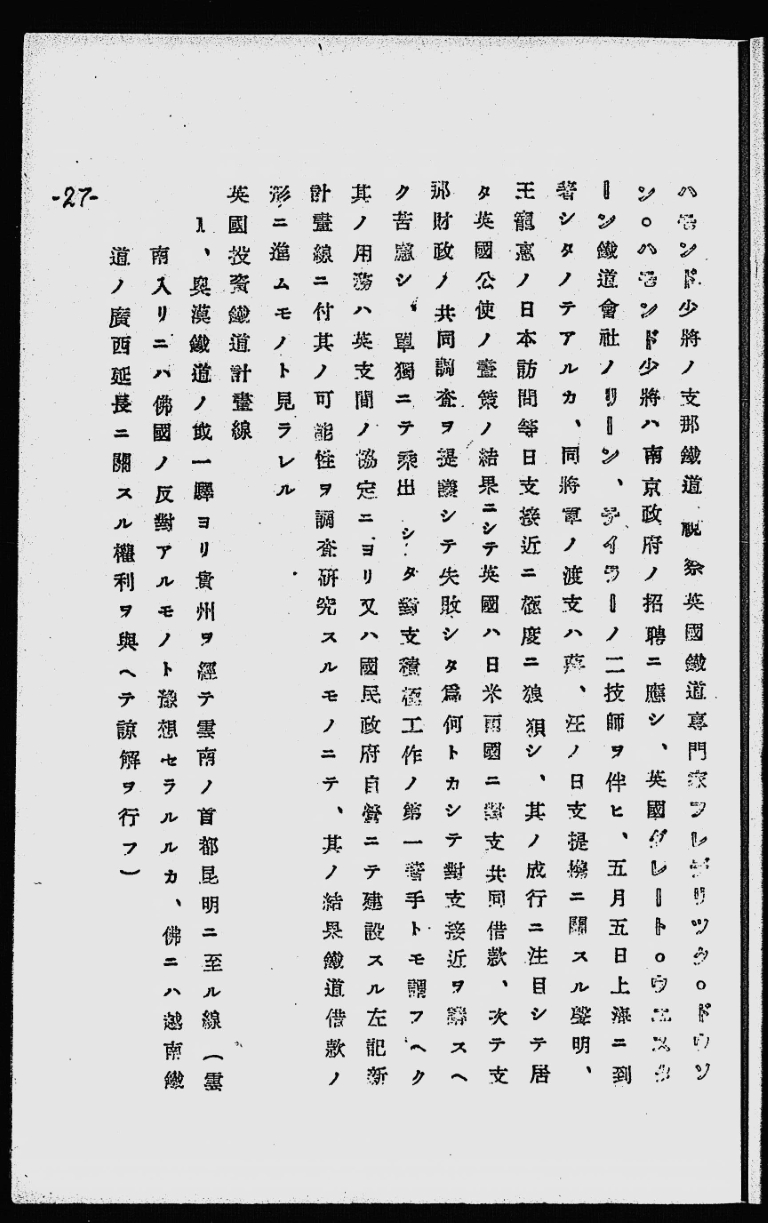 ハモンド少將ノ支那鐵道視祭英國鐵道專門家フレデリツク。ドウソ
ン。ハモンド少將ハ南京政府ノ招聘ニ應シ、英國グレート。ウエスタ
ーン鐵道會社ノリーン、テイラーノ二技師ヲ伴ヒ、五月五日上海ニ到
著シタノテアルカ、同將軍ノ渡支ハ蔣、汪ノ日支提携ニ關スル聲明、
王寵惠ノ日本訪問等日支接近ニ極度ニ狼狽シ、其ノ成行ニ注目シテ居
タ英國公使ノ畫策ノ結果ニシテ英國ハ日米兩國ニ對支共同借款、次テ支
那財政ノ共同調査ヲ提議シテ失敗シタ爲何トカシテ對支接近ヲ講スヘ
ク苦慮シ、單獨ニテ乘出シタ對支積極工作ノ第一著手トモ謂フヘク
其ノ用務ハ英支間ノ協定ニヨリ又ハ國民政府自營ニテ建設スル左記新
計畫線ニ付其ノ可能性ヲ調査硏究スルモノニテ、其ノ結果鐵道借款ノ
形ニ進ムモノト見ラレル
英國投資鐵道計畫線
1、奧漢鐵道ノ或一驛ヨリ貴州ヲ經テ雲南ノ首都昆明ニ至ル線（雲
南入リニハ佛國ノ反對アルモノト豫想セラルルカ、佛ニハ越南鐵
道ノ廣西延長ニ關スル權利ヲ與ヘテ諒解ヲ行フ）
-27-